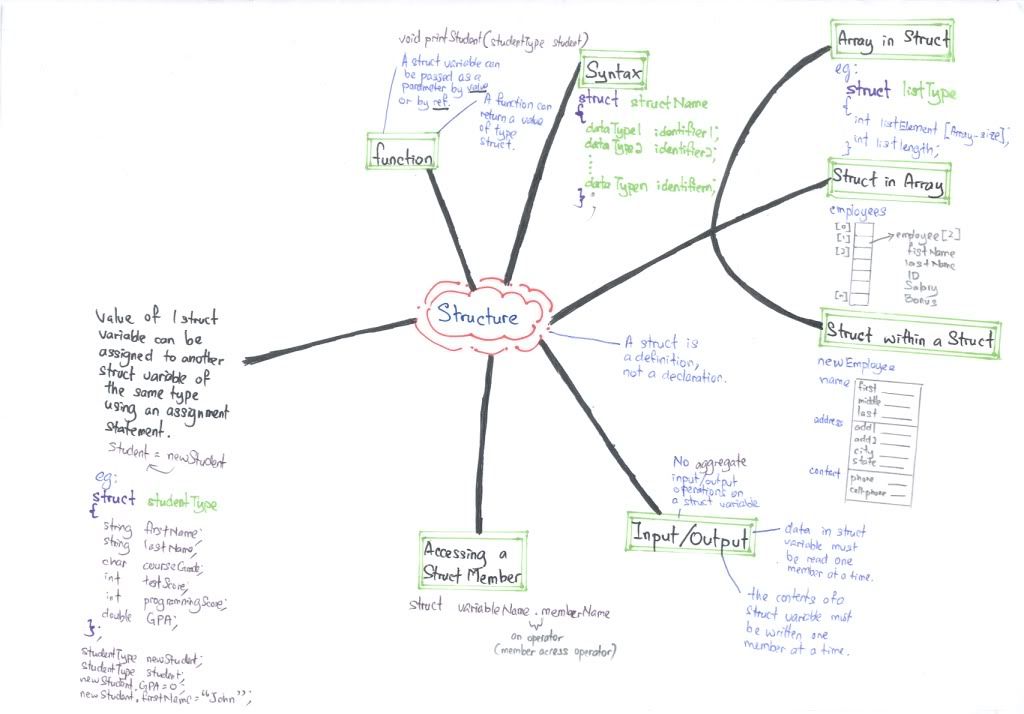 void printStudent(studentType student)
A struct variable can
be passed as a
parameter by value
or by ref.
A function can
return a value
of type
struct.
function
Syntax
struct structName
{
dataType1 identifier1;
dataType2 identifier2;
:
:
dataTypen identifiern;
} ;
Array in Struct
eg:
struct listType
{
int listElement [Array-size];
int listlength;
}
Struct in Array
employees
[0]
[1]
[2]
[n]
employee[2]
fistName
lastName
ID
Salary
Bonus
Struct within a Struct
newEmployee
name
first
middle
last
address
add1
add2
city
state
contact
phone
cellphone
Structure
A struct is
a definition,
not a declaration.
Value of 1 struct
variable can be
assigned to another
struct variable of
the same type
using an assignment
statement.
student = newStudent
eg:
struct studentType
{
string firstName;
string lastName;
char courseGrade;
int testScore;
int programmingScore;
double GPA;
};
studentType newStudent;
studentType student;
newStudent.GPA = 0;
newStudent.firstName = "John";
Accessing a
Struct Member
struct variableName.memberName
an operator
(member access operator)
No aggregate
input/output
operations on
a struct variable
Input/Output
data in struct
variable must
be read one
member at a time.
the contents of a
struct variable must
be written one
member at a time.